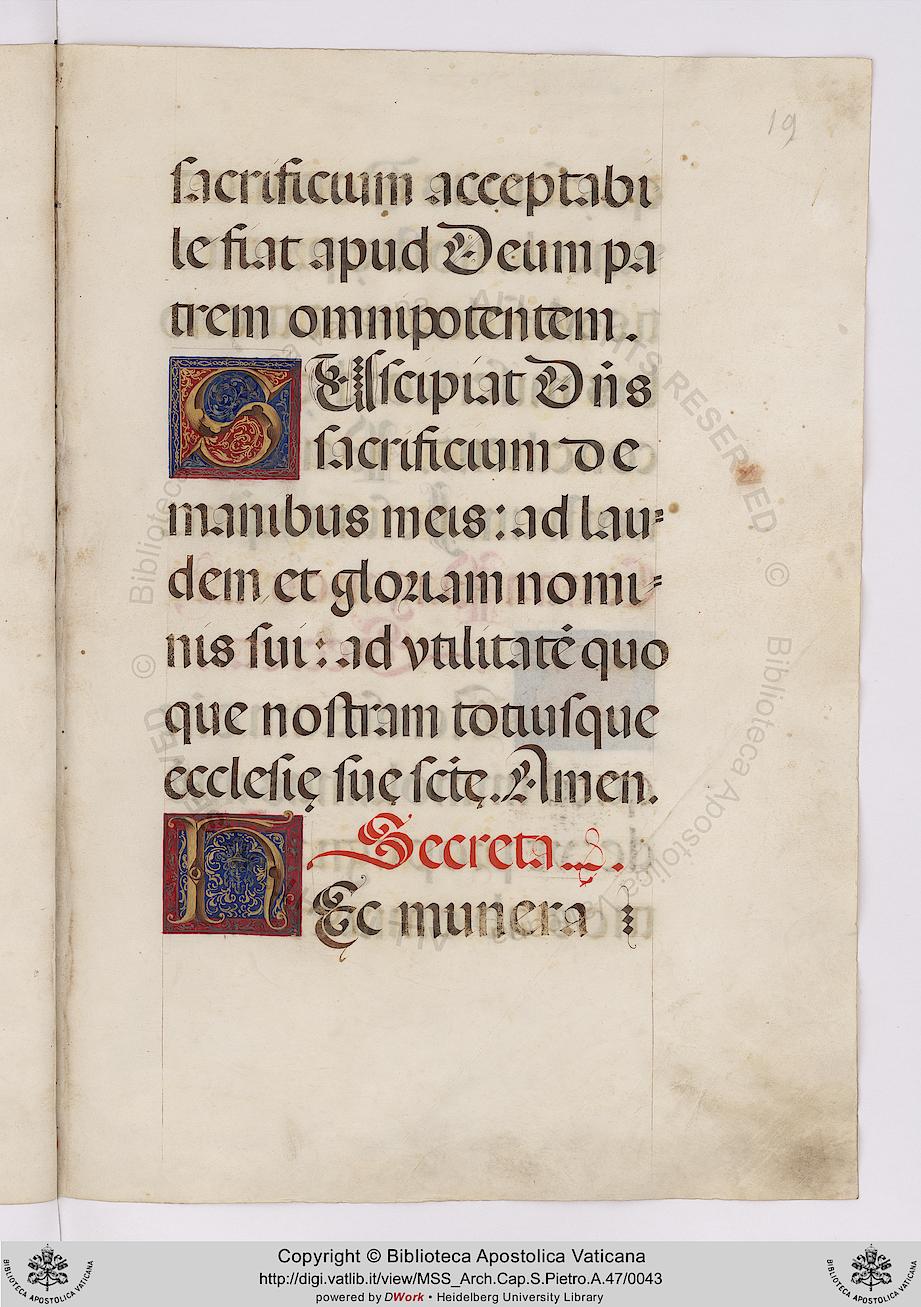 19
sacrificium acceptabi
le fiat apud Deum pa⸗
trem omnipotentem.
SUscipiat Dn̄s
sacrificium de
manibus meis: ad lau⸗
dem et gloriam nomi⸗
nis sui: ad vtilitatē quo
que nostram totiusque
ecclesię suę scīę. Amen.
Secreta.
HEc munera
Copyright © Biblioteca Apostolica Vaticana
http://digi.vatlib.it/view/MSS_Arch.Cap.S.Pietro.A.47/0043
powered by DWork • Heidelberg University Library
BIBLIOTECA APOSTOLICA VATICANA
BIBLIOTECA APOSTOLICA VATICANA